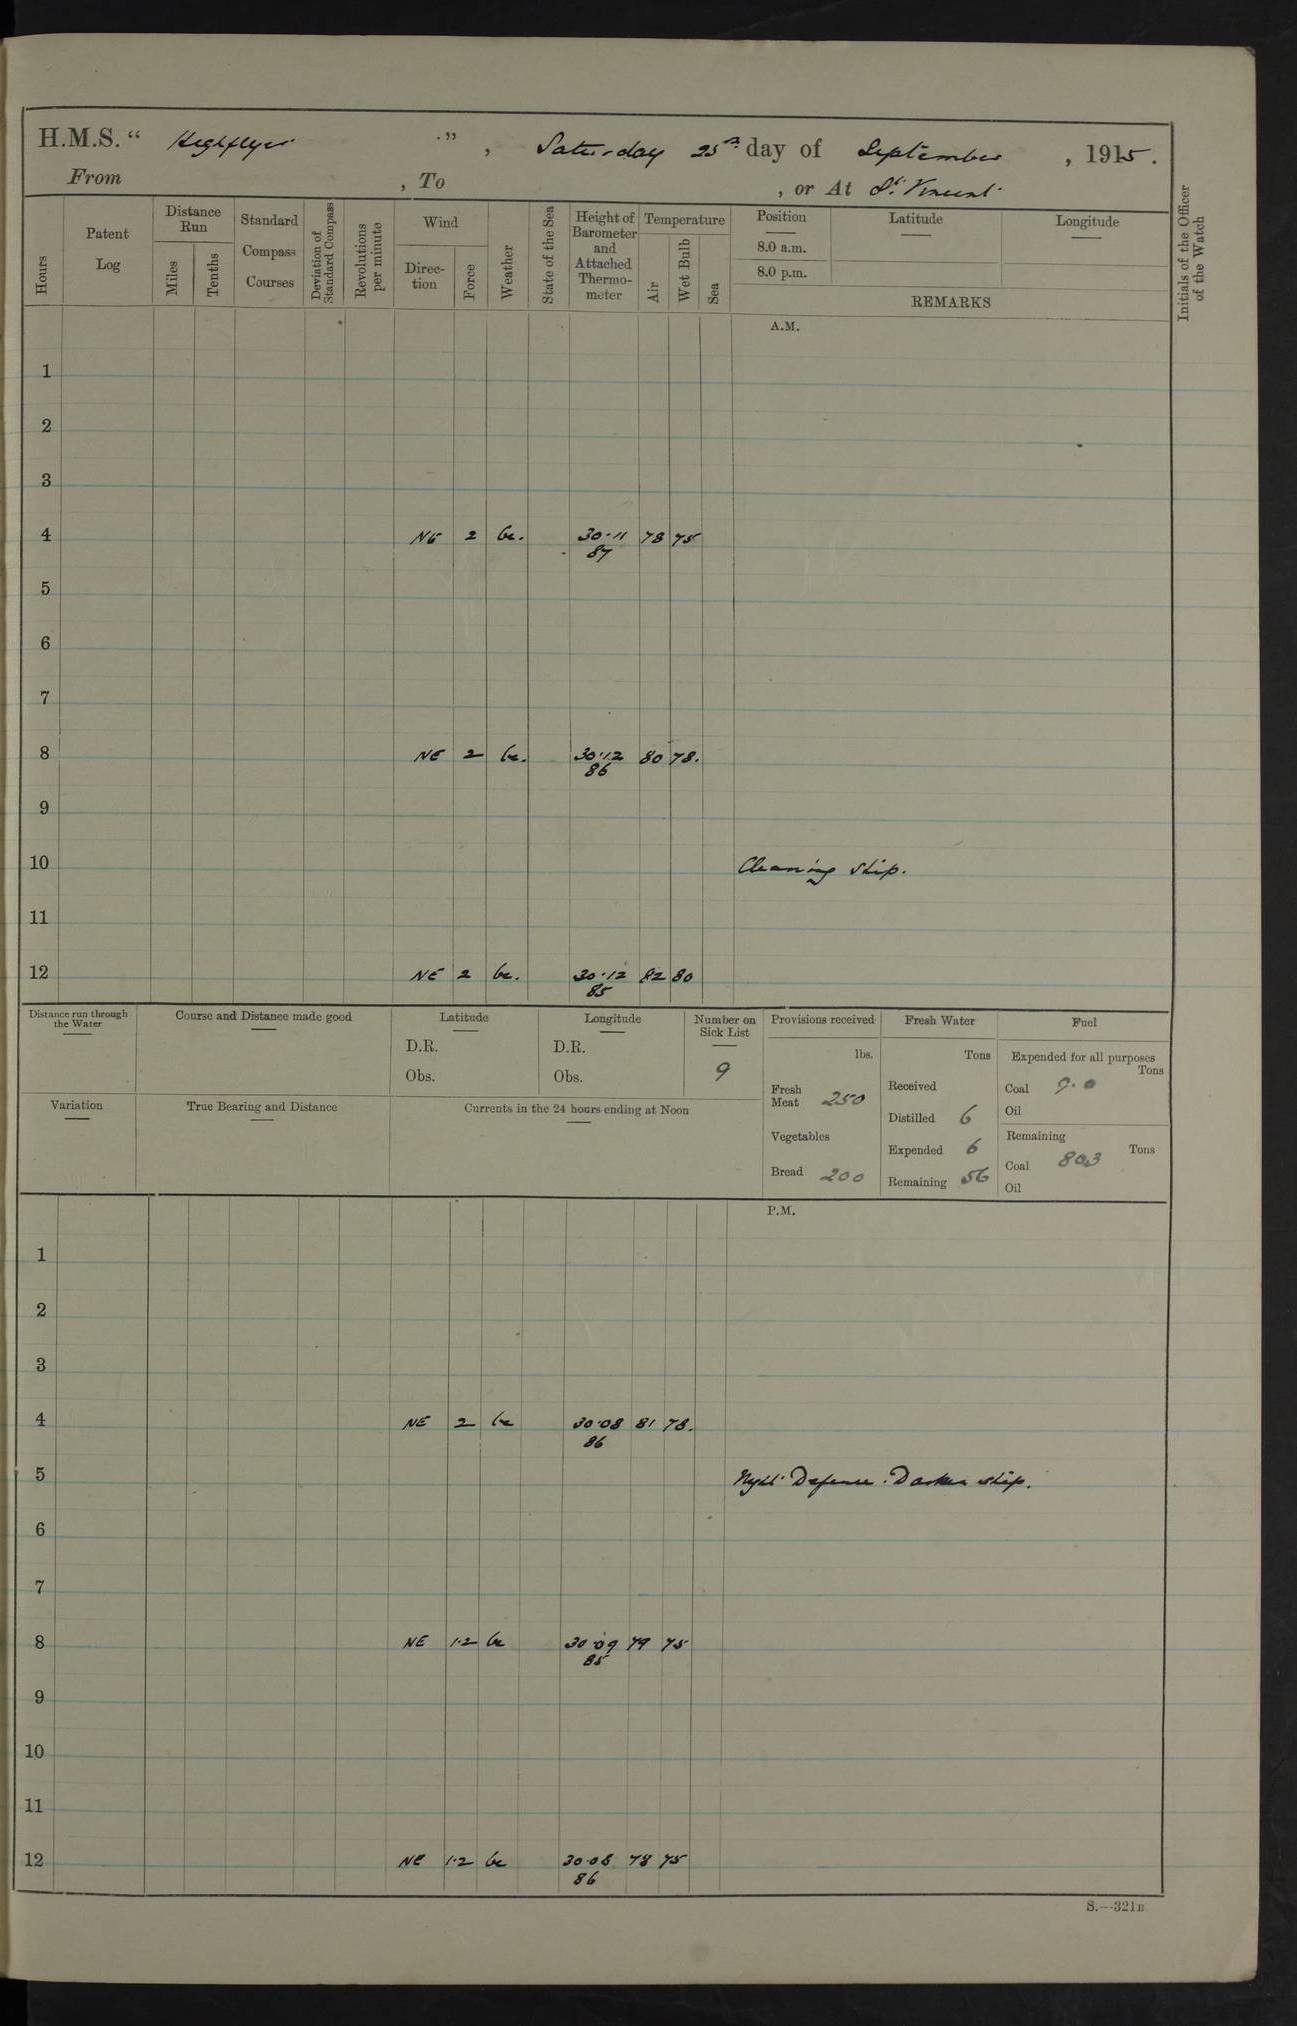 H.M.S. “ Highflyer ”, Saturday 25th day of September, 1915.
From , To , or At St Vincent
Hours
Patent Log
Distance Run
Miles
Tenths
Standard Compass Courses
Deviation of Standard Compass
Revolutions per minute
Wind
Direction
Force
Weather
State of the Sea
Height of Barometer and Attached Thermometer
Temperature
Air
Wet Bulb
Sea
Position
8.0 a.m.
8.0 p.m.
Latitude
Longitude
REMARKS
Initials of the Officer of the Watch
A.M.
1
2
3
4 NE 2 bc. 30.11 78 75
87
5
6
7
8 NE 2 bc. 30.12 80 78.
86
9
10 Cleaning ship.
11
12 NE 2 bc. 30.12 82 80
85
Distance run through the Water
Course and Distance made good
Latitude
D.R.
Obs.
Longitude
D.R.
Obs.
Number on Sick List
9
Provisions received
lbs.
Fresh Meat 250
Vegetables
Bread 200
Fresh Water
Tons
Received
Distilled 6
Expended 6
Remaining 56
Fuel
Expended for all purposes
Tons
Coal 9.0
Oil
Remaining
Tons
Coal 803
Oil
Variation
True Bearing and Distance
Currents in the 24 hours ending at Noon
P.M.
1
2
3
4 NE 2 bc 30.08 81 78.
86
5 Night Defence. Darken ship.
6
7
8 NE 1.2 bc 30.09 79 75
85
9
10
11
12 NE 1.2 bc 30.08 78 75
86
S.—321B